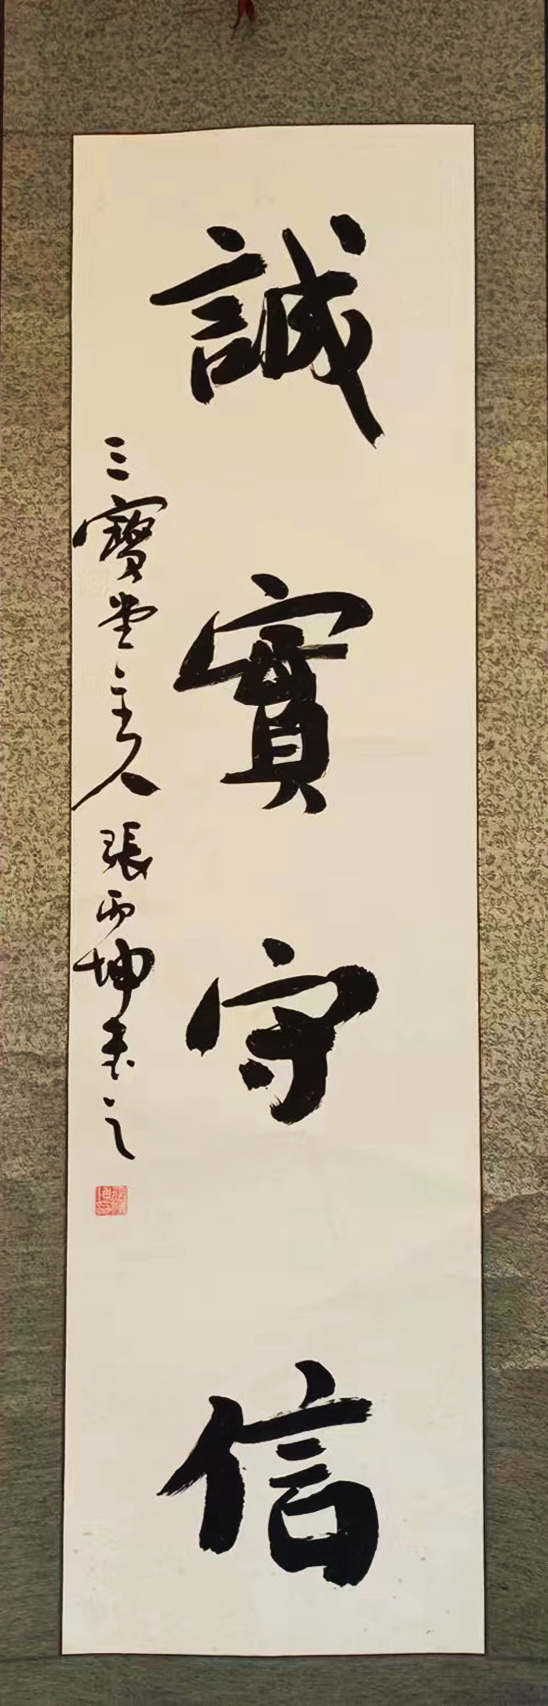 誠實守信
三寶堂主人張雨坤書之